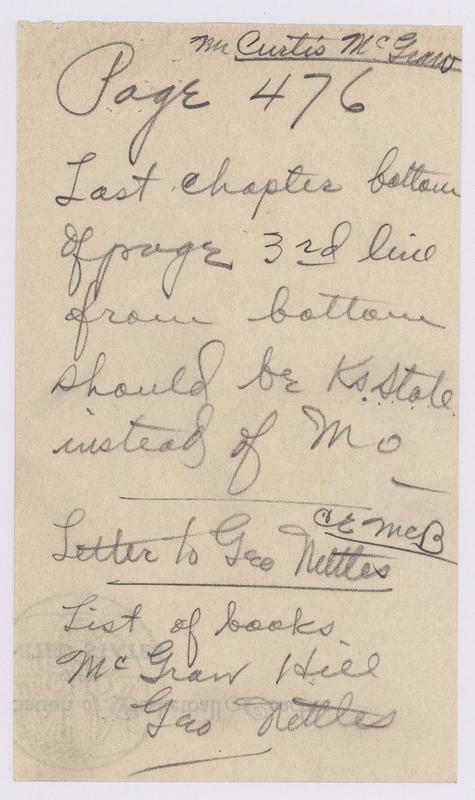 Mr Curtis McGraw
Page 476
Last chapter bottom
of page 3rd line
from bottom
should be Ks. State
instead of Mo
CE McB
Letter to Geo Nettles
List of books
McGraw Hill
Geo Nettles